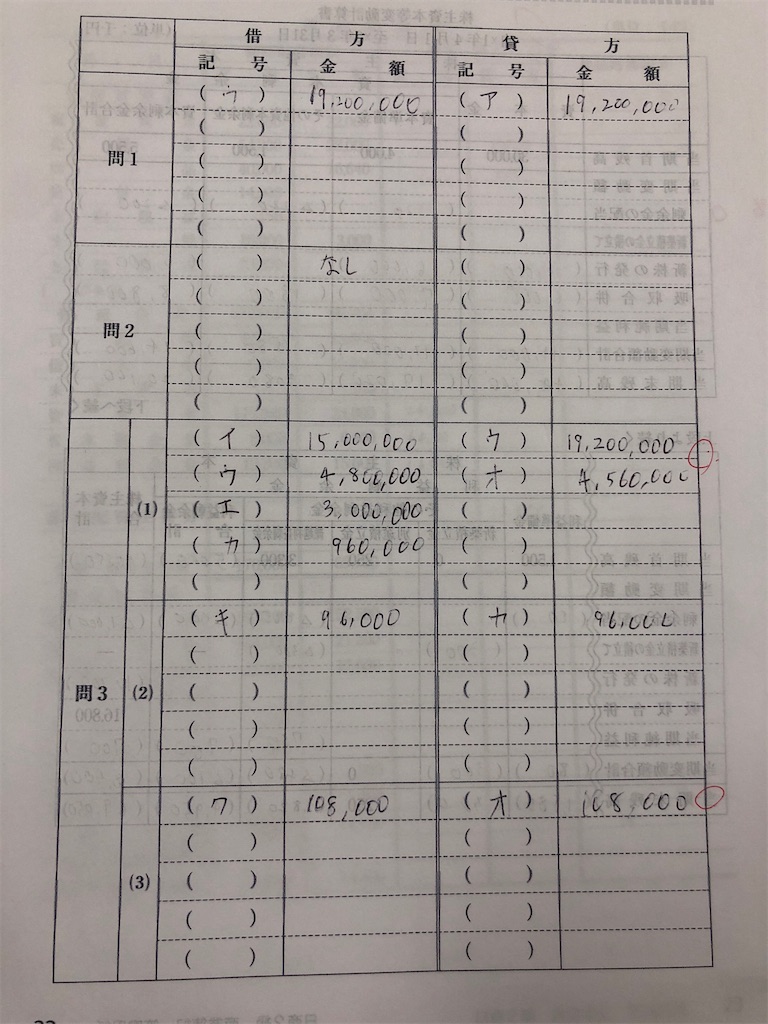 借 方 貸 方
記 号 金 額 記 号 金 額
問1
( ウ ) 19,200,000 ( ア ) 19,200,000
( ) ( )
( ) ( )
( ) ( )
( ) ( )
問2
( ) なし ( )
( ) ( )
( ) ( )
( ) ( )
( ) ( )
問3
(1)
( イ ) 15,000,000 ( ウ ) 19,200,000
( ウ ) 4,800,000 ( オ ) 4,560,000
( エ ) 3,000,000 ( )
( カ ) 960,000 ( )
( ) ( )
(2)
( キ ) 96,000 ( カ ) 96,000
( ) ( )
( ) ( )
( ) ( )
( ) ( )
(3)
( ワ ) 108,000 ( オ ) 108,000
( ) ( )
( ) ( )
( ) ( )
( ) ( )